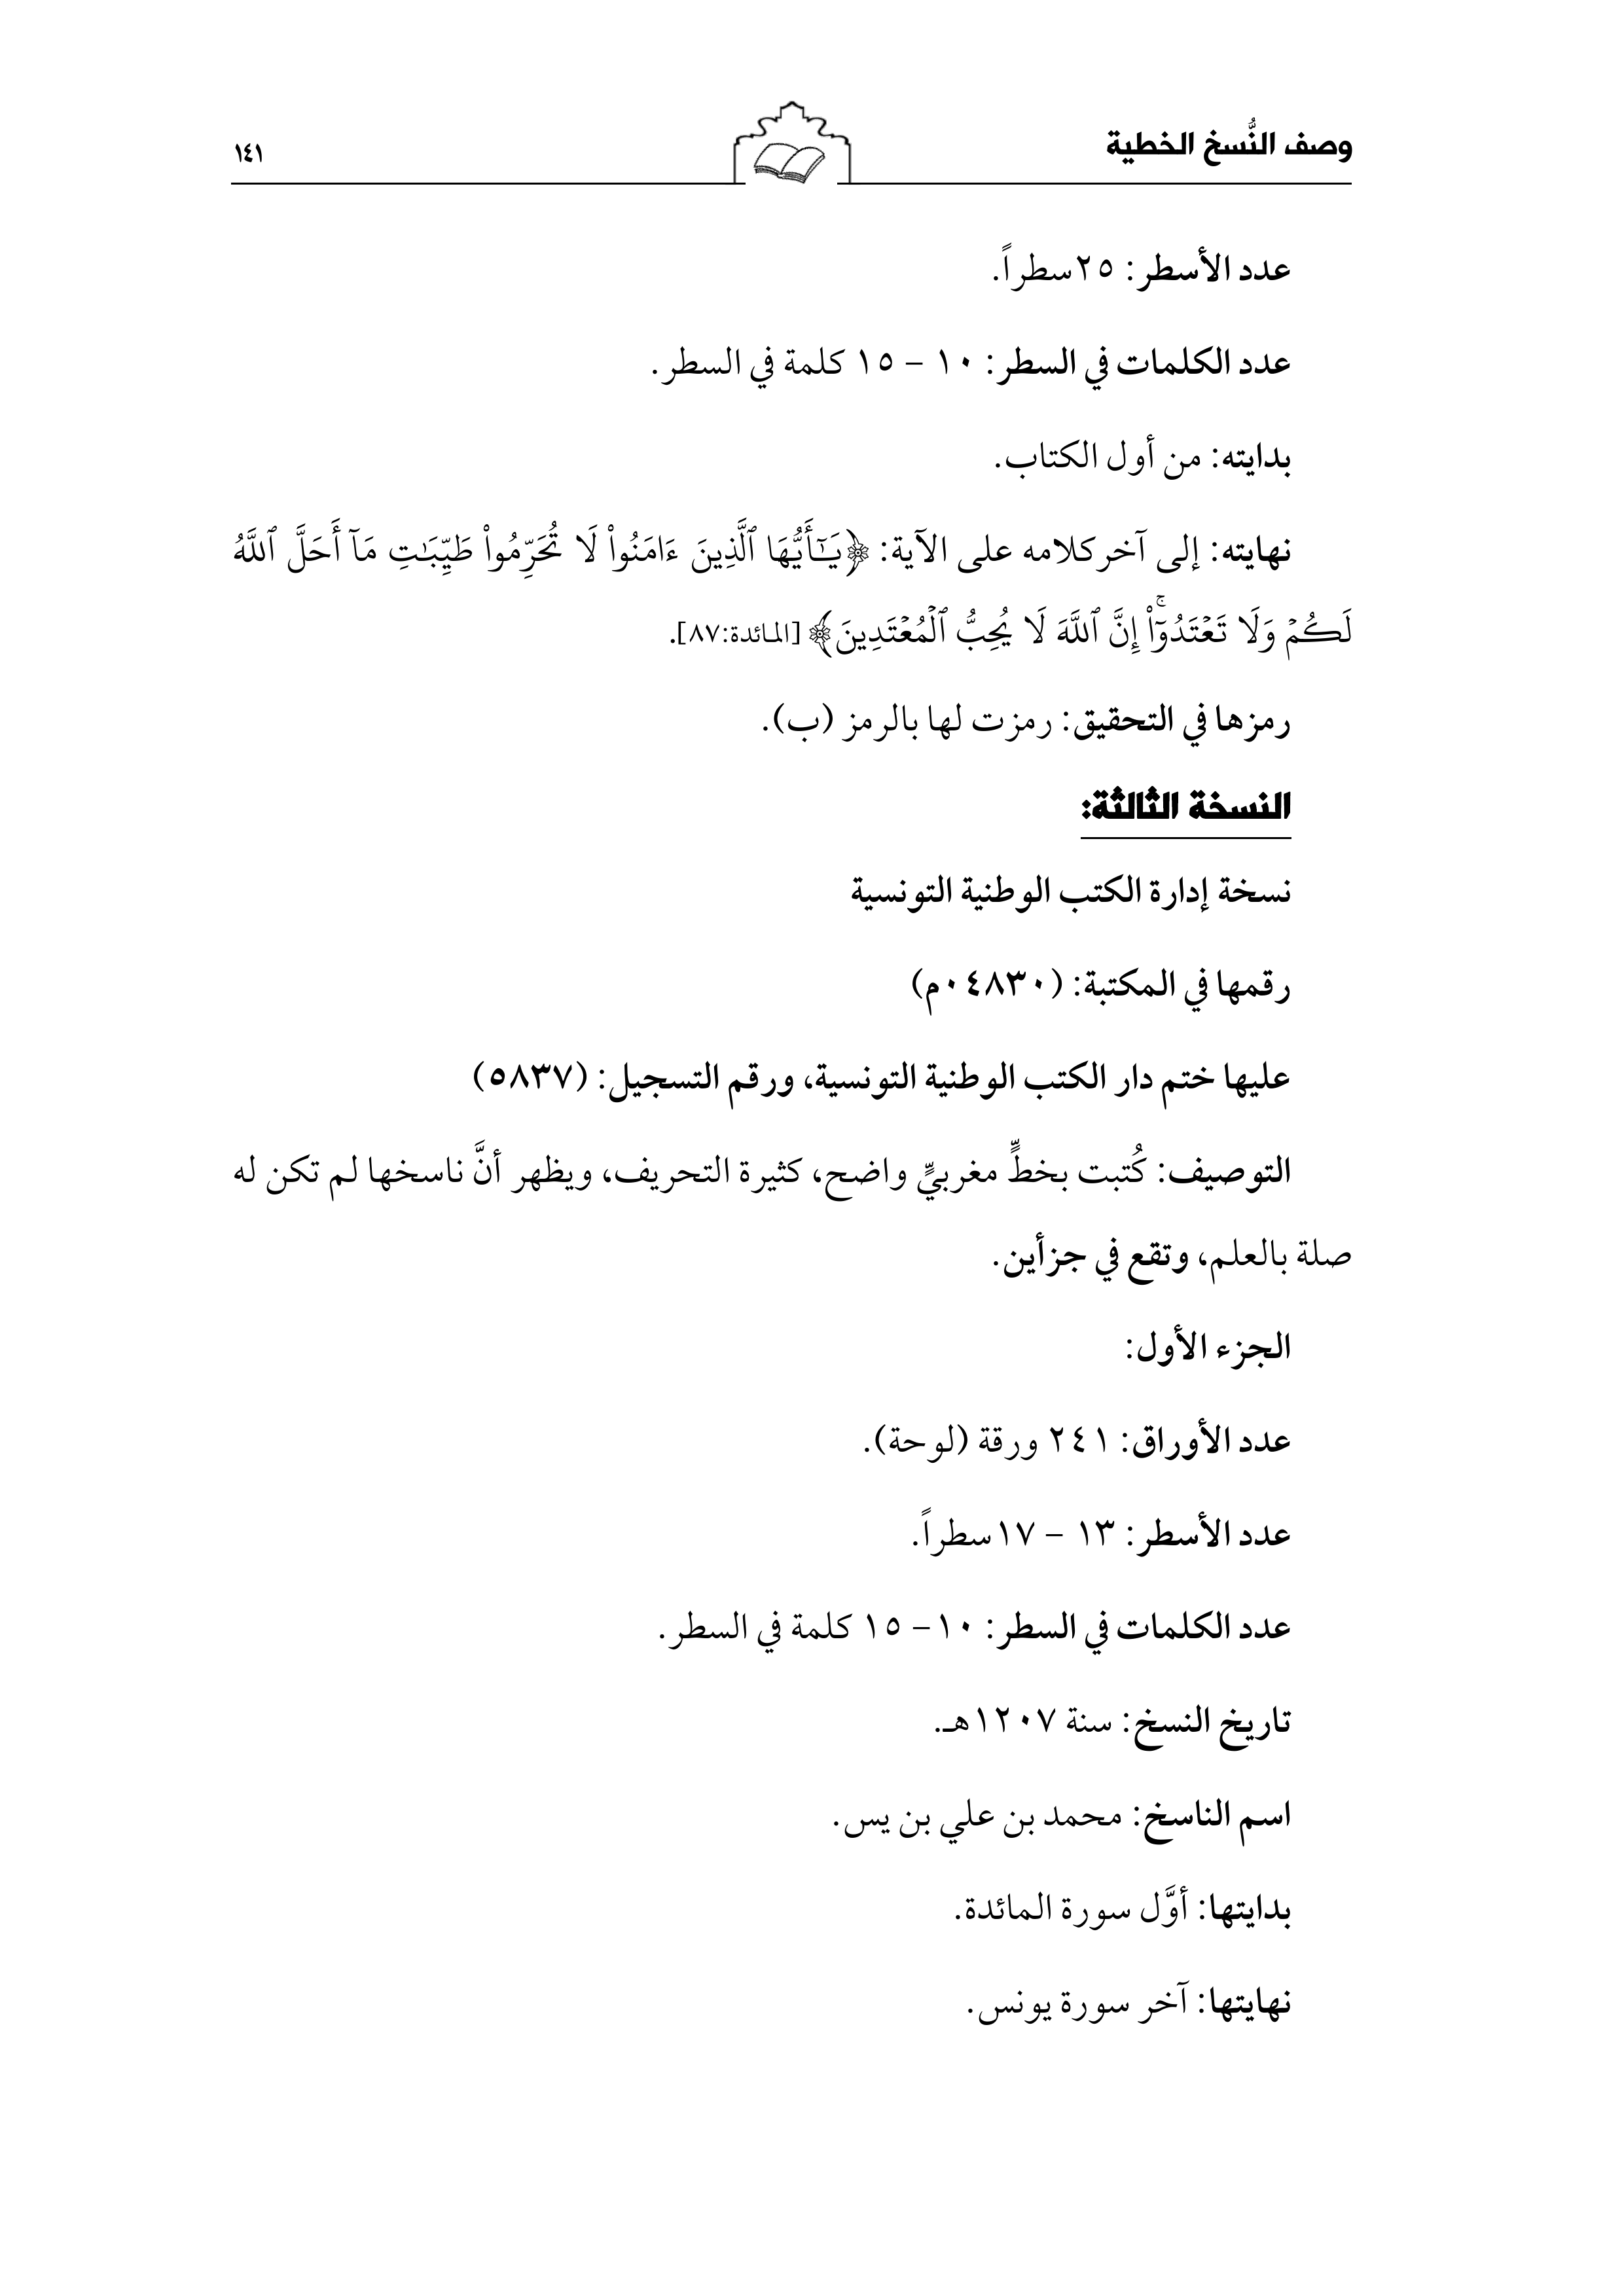 وصف النُّسخ الخطية
١٤١
عدد الأسطر: ٢٥سطراً.
عدد الكلمات في السطر: ١٠ – ١٥ كلمة في السطر.
بدايته: من أول الكتاب.
نهايته: إلى آخر كلامه على الآية: ﴿يَـٰٓأَيُّهَا ٱلَّذِينَ ءَامَنُوا۟ لَا تُحَرِّمُوا۟ طَيِّبَـٰتِ مَآ أَحَلَّ ٱللَّهُ
لَكُمۡ وَلَا تَعۡتَدُوٓا۟ۚ إِنَّ ٱللَّهَ لَا يُحِبُّ ٱلۡمُعۡتَدِينَ﴾ [المائدة:٨٧].
رمزها في التحقيق: رمزت لها بالرمز (ب).
النسخة الثالثة:
نسخة إدارة الكتب الوطنية التونسية
رقمها في المكتبة: (٠٤٨٣٠م)
عليها ختم دار الكتب الوطنية التونسية، ورقم التسجيل: (٥٨٣٧)
التوصيف: كُتبت بخطٍّ مغربيٍّ واضح، كثيرة التحريف، ويظهر أنَّ ناسخها لم تكن له
صلة بالعلم، وتقع في جزأين.
الجزء الأول:
عدد الأوراق: ٢٤١ ورقة (لوحة).
عدد الأسطر: ١٣ – ١٧سطراً.
عدد الكلمات في السطر: ١٠– ١٥ كلمة في السطر.
تاريخ النسخ: سنة ١٢٠٧هـ.
اسم الناسخ: محمد بن علي بن يس.
بدايتها: أوَّل سورة المائدة.
نهايتها: آخر سورة يونس.